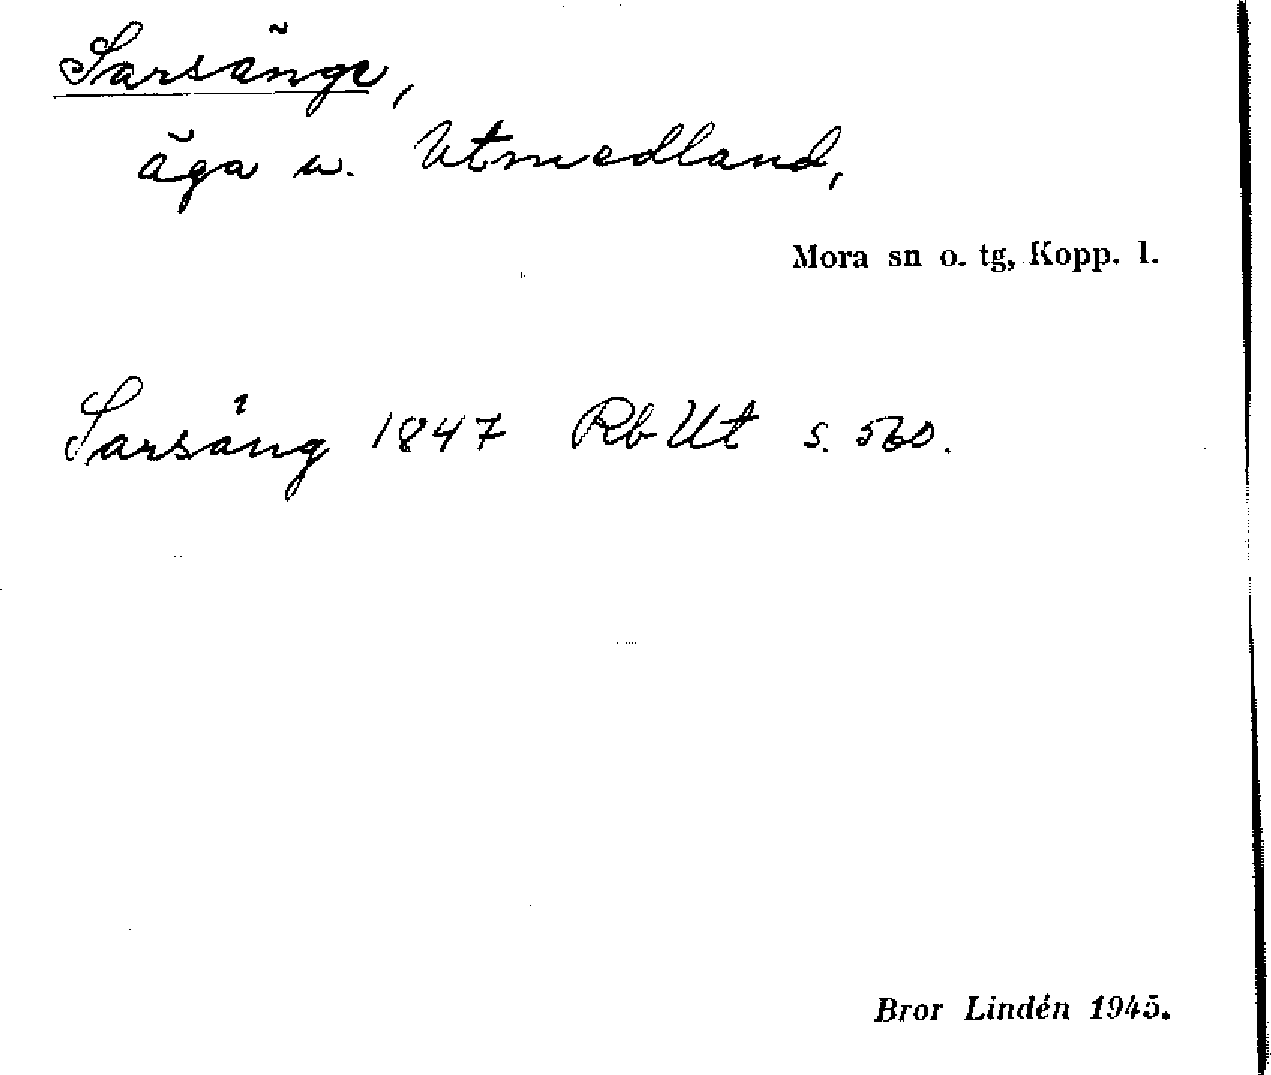 Sarsänge,
äga u. Utmedland,
Mora sn o. tg, Kopp. l.
Sarsäng 1847 Rb Ut s. 560.
Bror Lindén 1945.